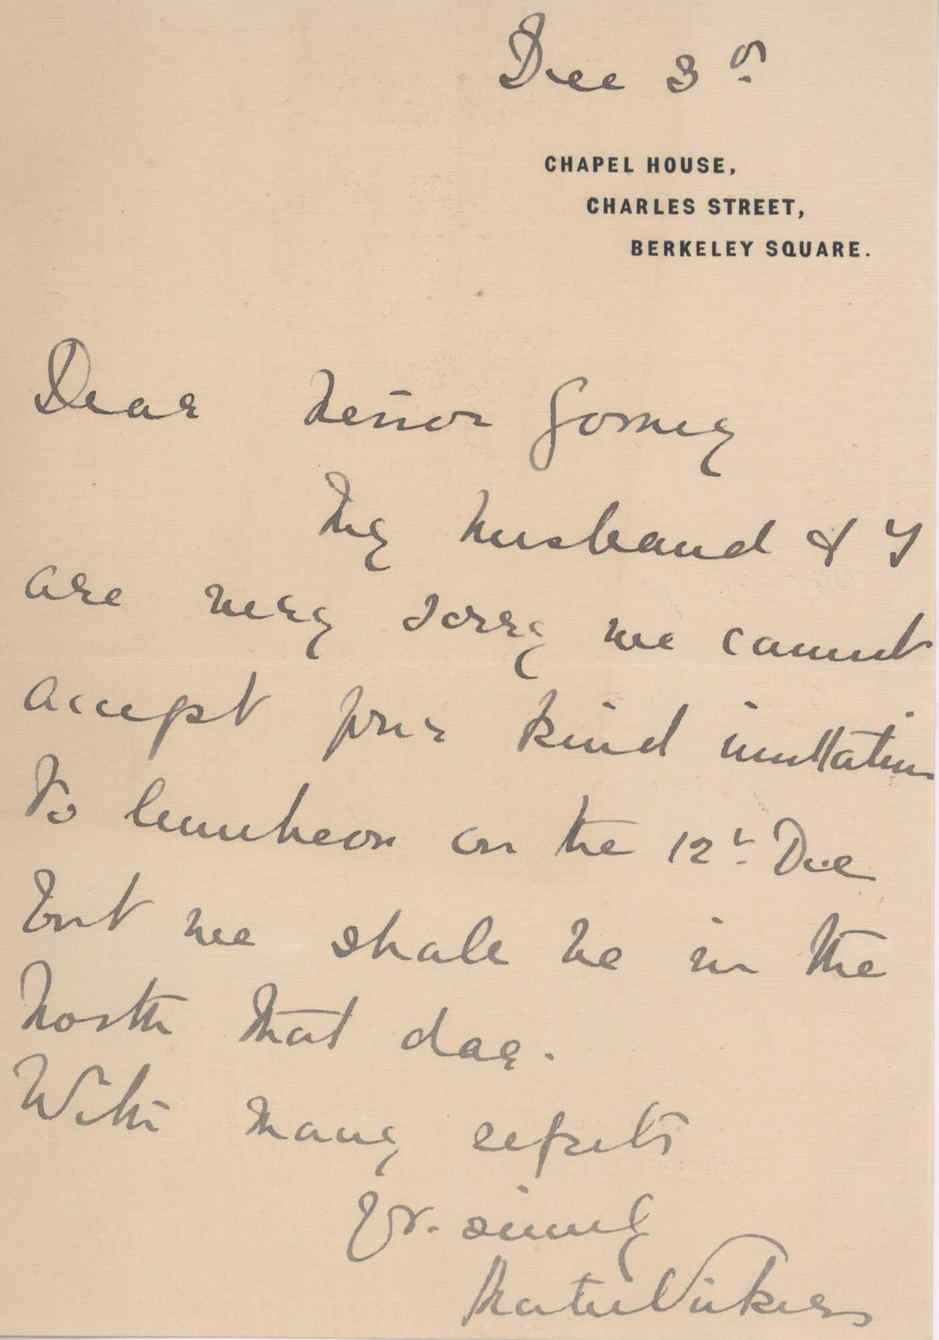 Dec 3rd
CHAPEL HOUSE,
CHARLES STREET,
BERKELEY SQUARE.
Dear Señor Gomez
My husband & I
are very sorry we cannot
accept your kind invitation
to luncheon on the 12th Dec
but we shall be in the
North that day.
With many regrets
Yr. sincly
Vickers